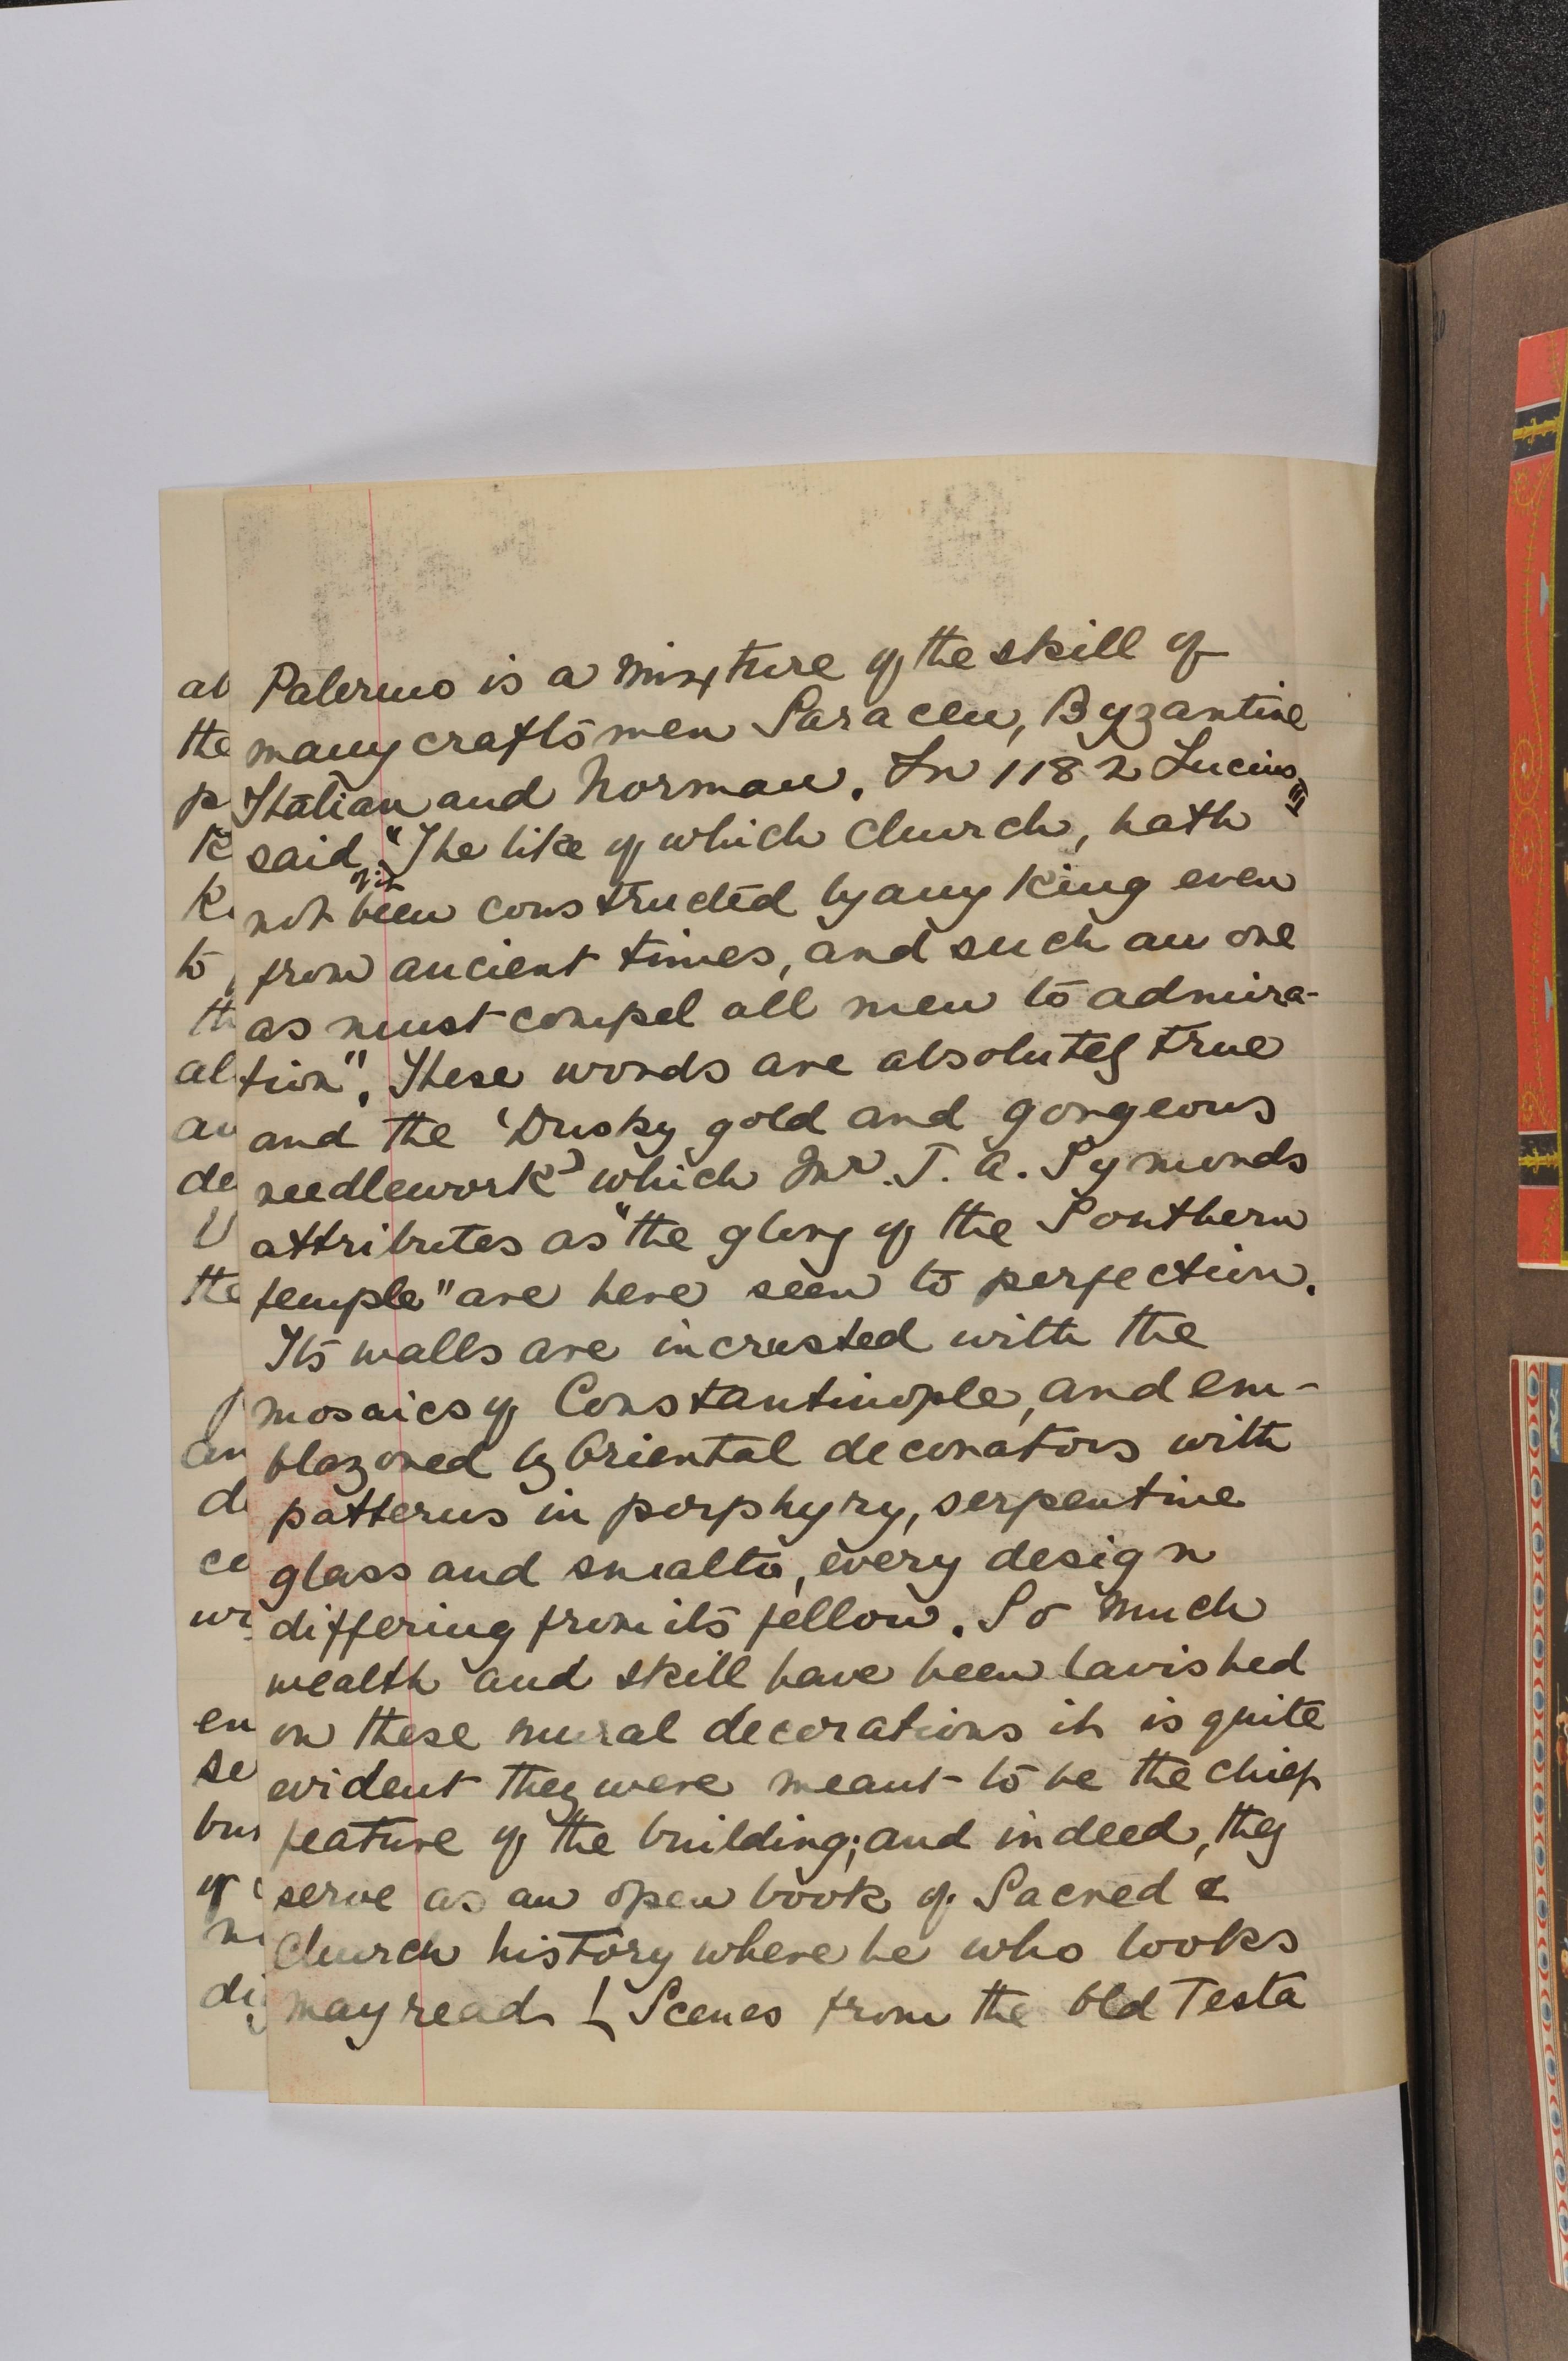 Palermo is a mixture of the skill of
many craftsmen Saracen, Byzantine
Italian and Norman. In 1182 Lucius III
said of it, "The like of which church, hath
not been constructed by any King even
from ancient times, and such an one
as must compel all men to admira-
tion". These words are absolutely true
and the 'Dusky gold and gorgeous
needlework' which Mr. J. A. Symonds
attributes as "the glory of the Southern
temple" are here seen to perfection.
Its walls are incrusted with the
mosaics of Constantinople, and em-
blazoned by Oriental decorators with
patterns in porphyry, serpentine
glass and smalto, every design
differing from its fellow. So much
wealth and skill have been lavished
on these mural decorations it is quite
evident they were meant to be the chief
feature of the building; and indeed, they
serve as an open book of Sacred &
Church history where he who looks
may read. [Scenes from the Old Testa